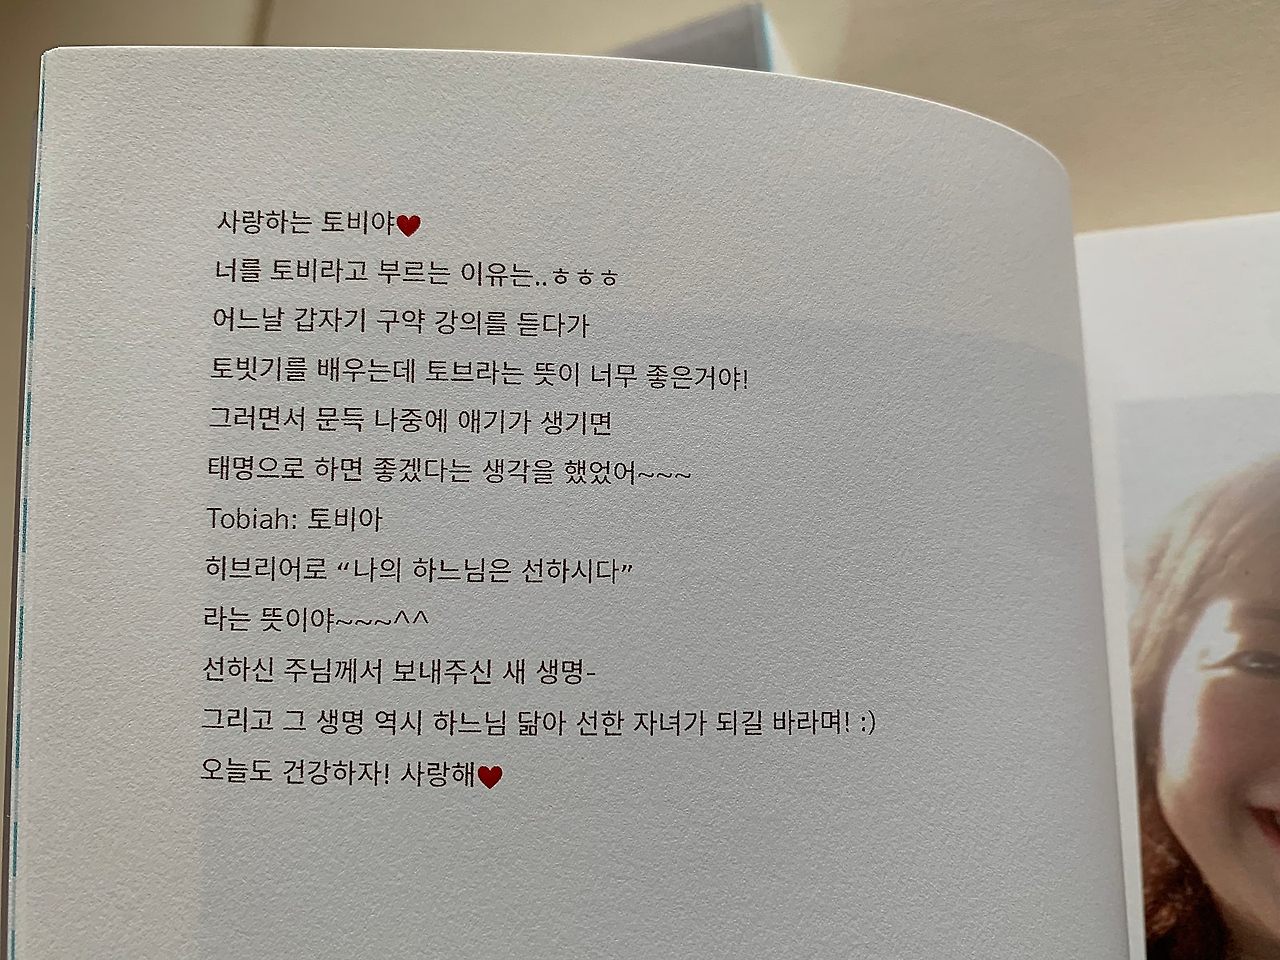 사랑하는 토비야♥
너를 토비라고 부르는 이유는..ㅎㅎㅎ
어느날 갑자기 구약 강의를 듣다가
토빗기를 배우는데 토브라는 뜻이 너무 좋은거야!
그러면서 문득 나중에 애기가 생기면
태명으로 하면 좋겠다는 생각을 했었어~~~
Tobiah: 토비아
히브리어로 “나의 하느님은 선하시다”
라는 뜻이야~~~^^
선하신 주님께서 보내주신 새 생명-
그리고 그 생명 역시 하느님 닮아 선한 자녀가 되길 바라며! :)
오늘도 건강하자! 사랑해♥